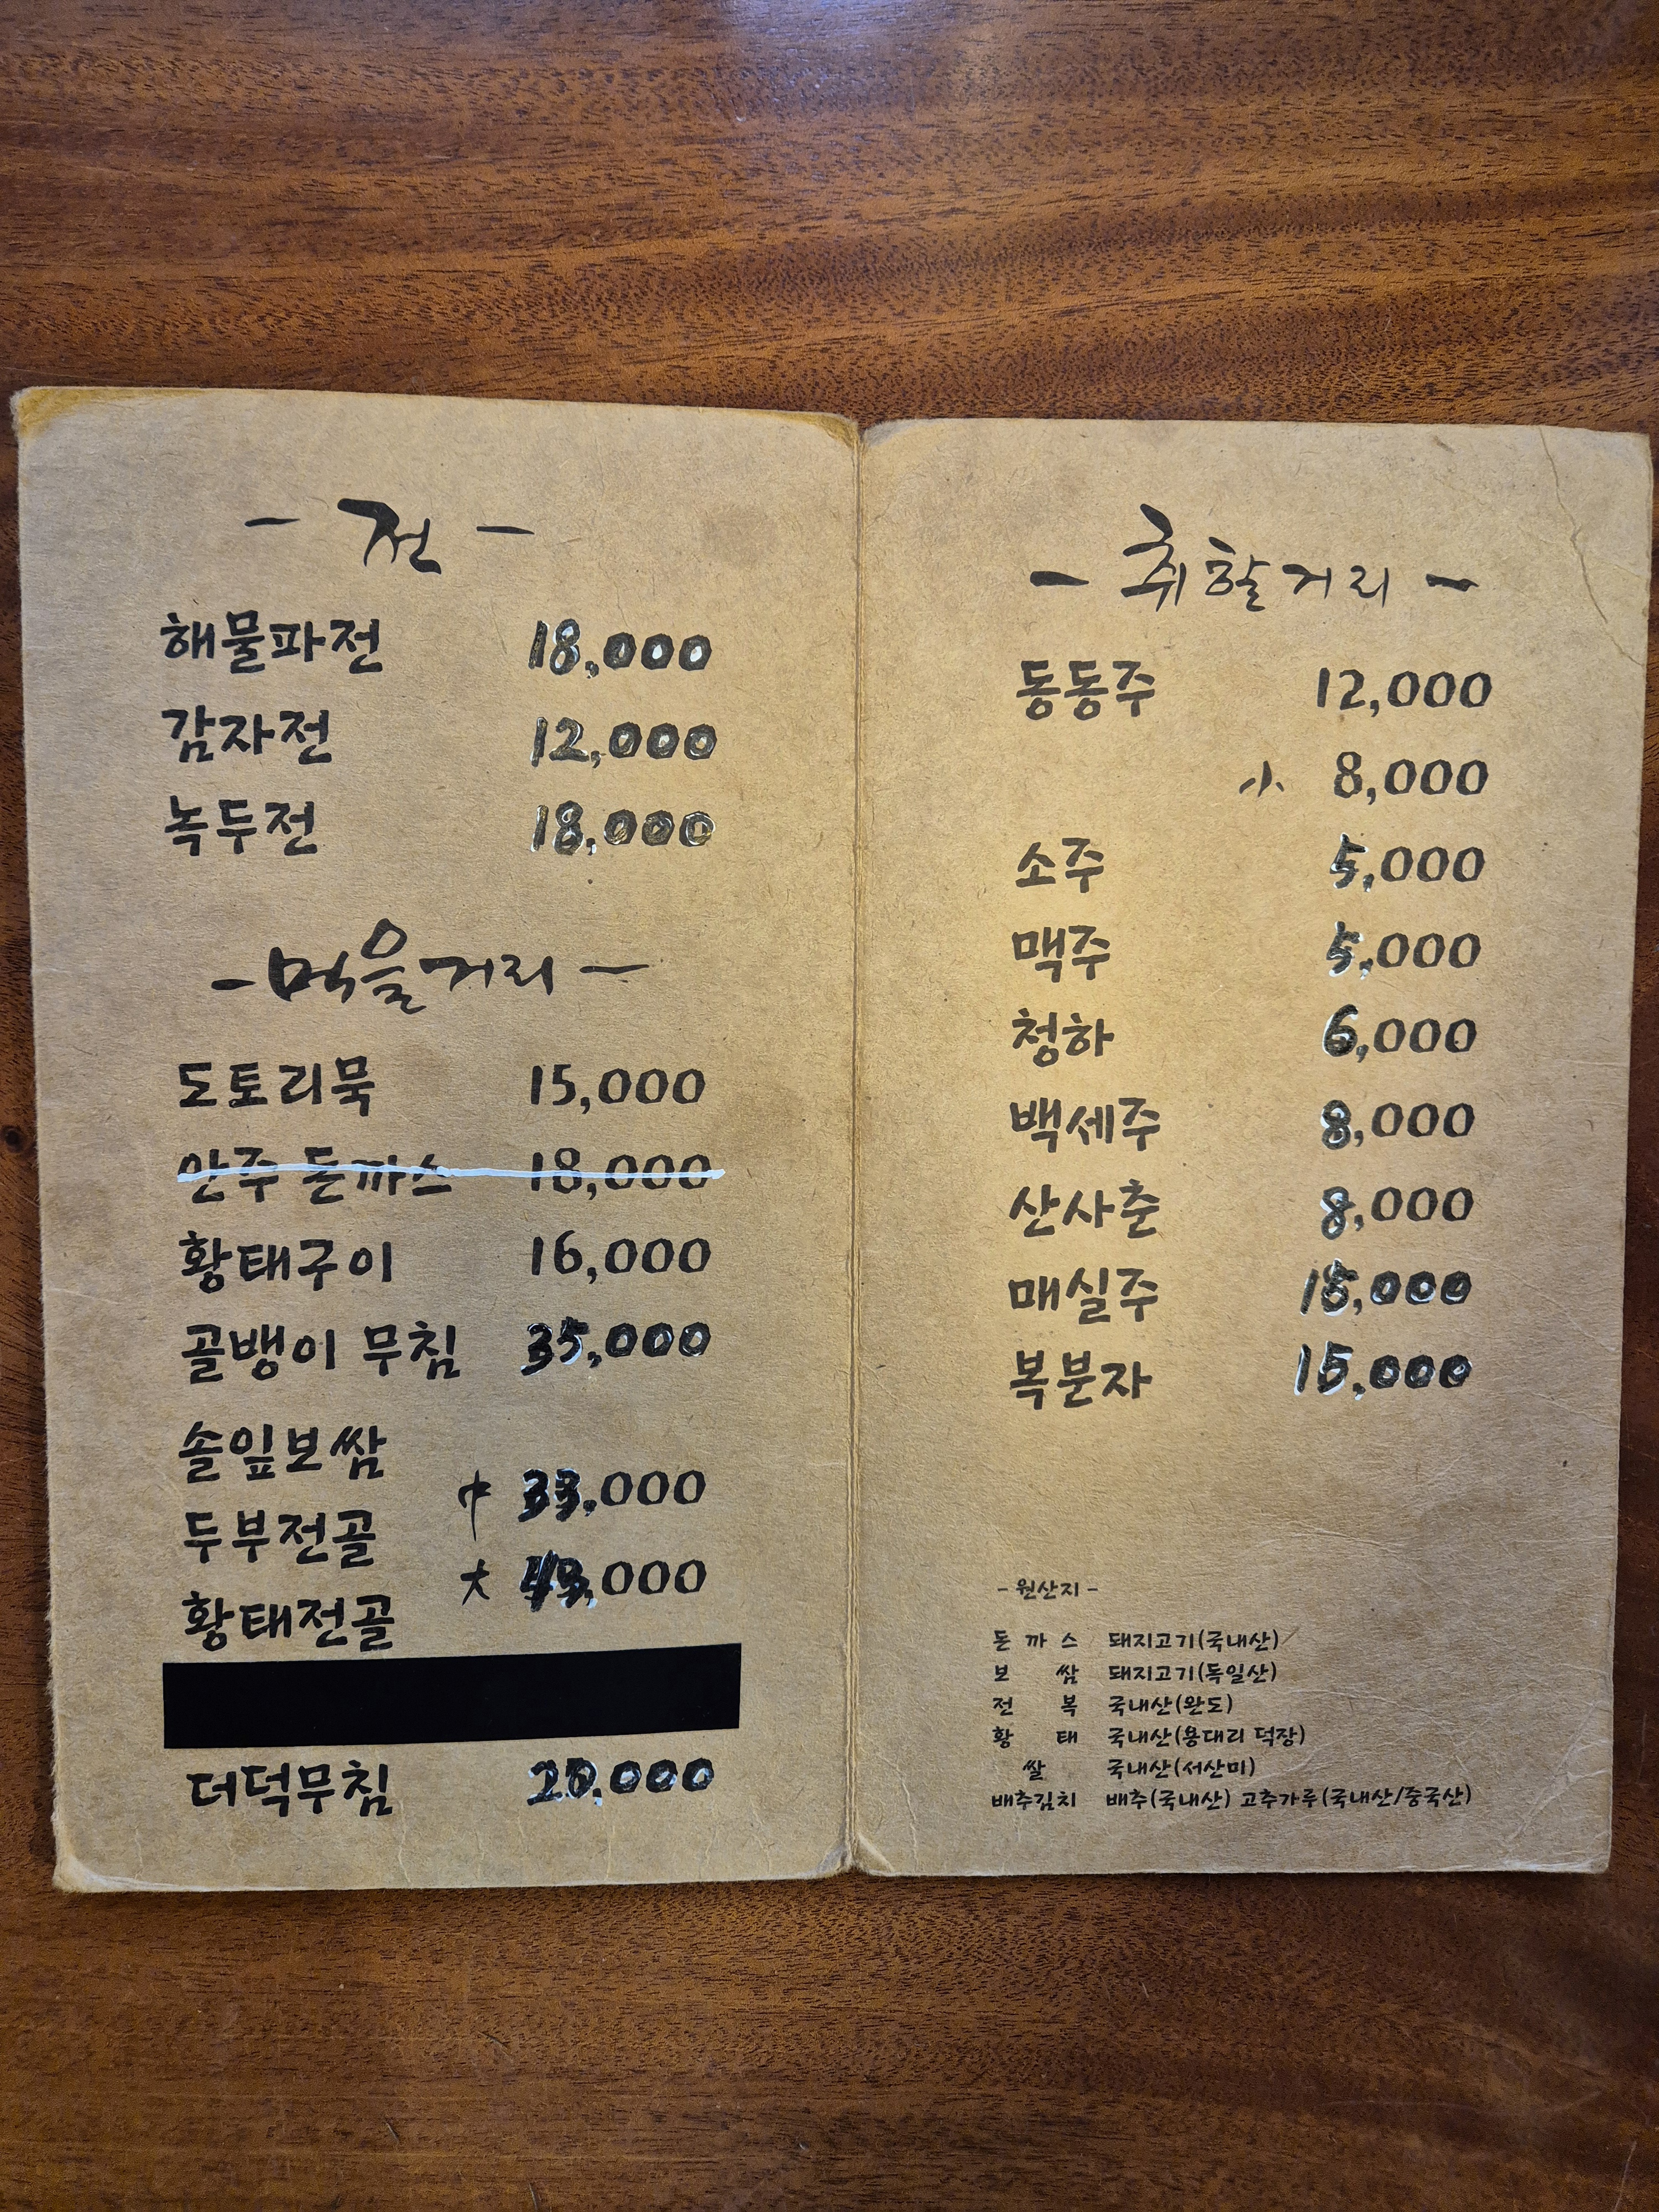 - 전 -
해물파전 18,000
감자전 12,000
녹두전 18,000
- 먹을거리 -
도토리묵 15,000
안주 돈까스 18,000
황태구이 16,000
골뱅이 무침 35,000
솔잎보쌈
中 33,000
두부전골
大 ,000
황태전골
더덕무침 ,000
- 취할거리 -
동동주 12,000
小 8,000
소주 5,000
맥주 5,000
청하 6,000
백세주 8,000
산사춘 8,000
매실주 15,000
복분자 15,000
- 원산지 -
돈까스 돼지고기(국내산)
보쌈 돼지고기(독일산)
전복 국내산(완도)
황태 국내산(용대리 덕장)
쌀 국내산(서산미)
배추김치 배추(국내산) 고추가루(국내산/중국산)